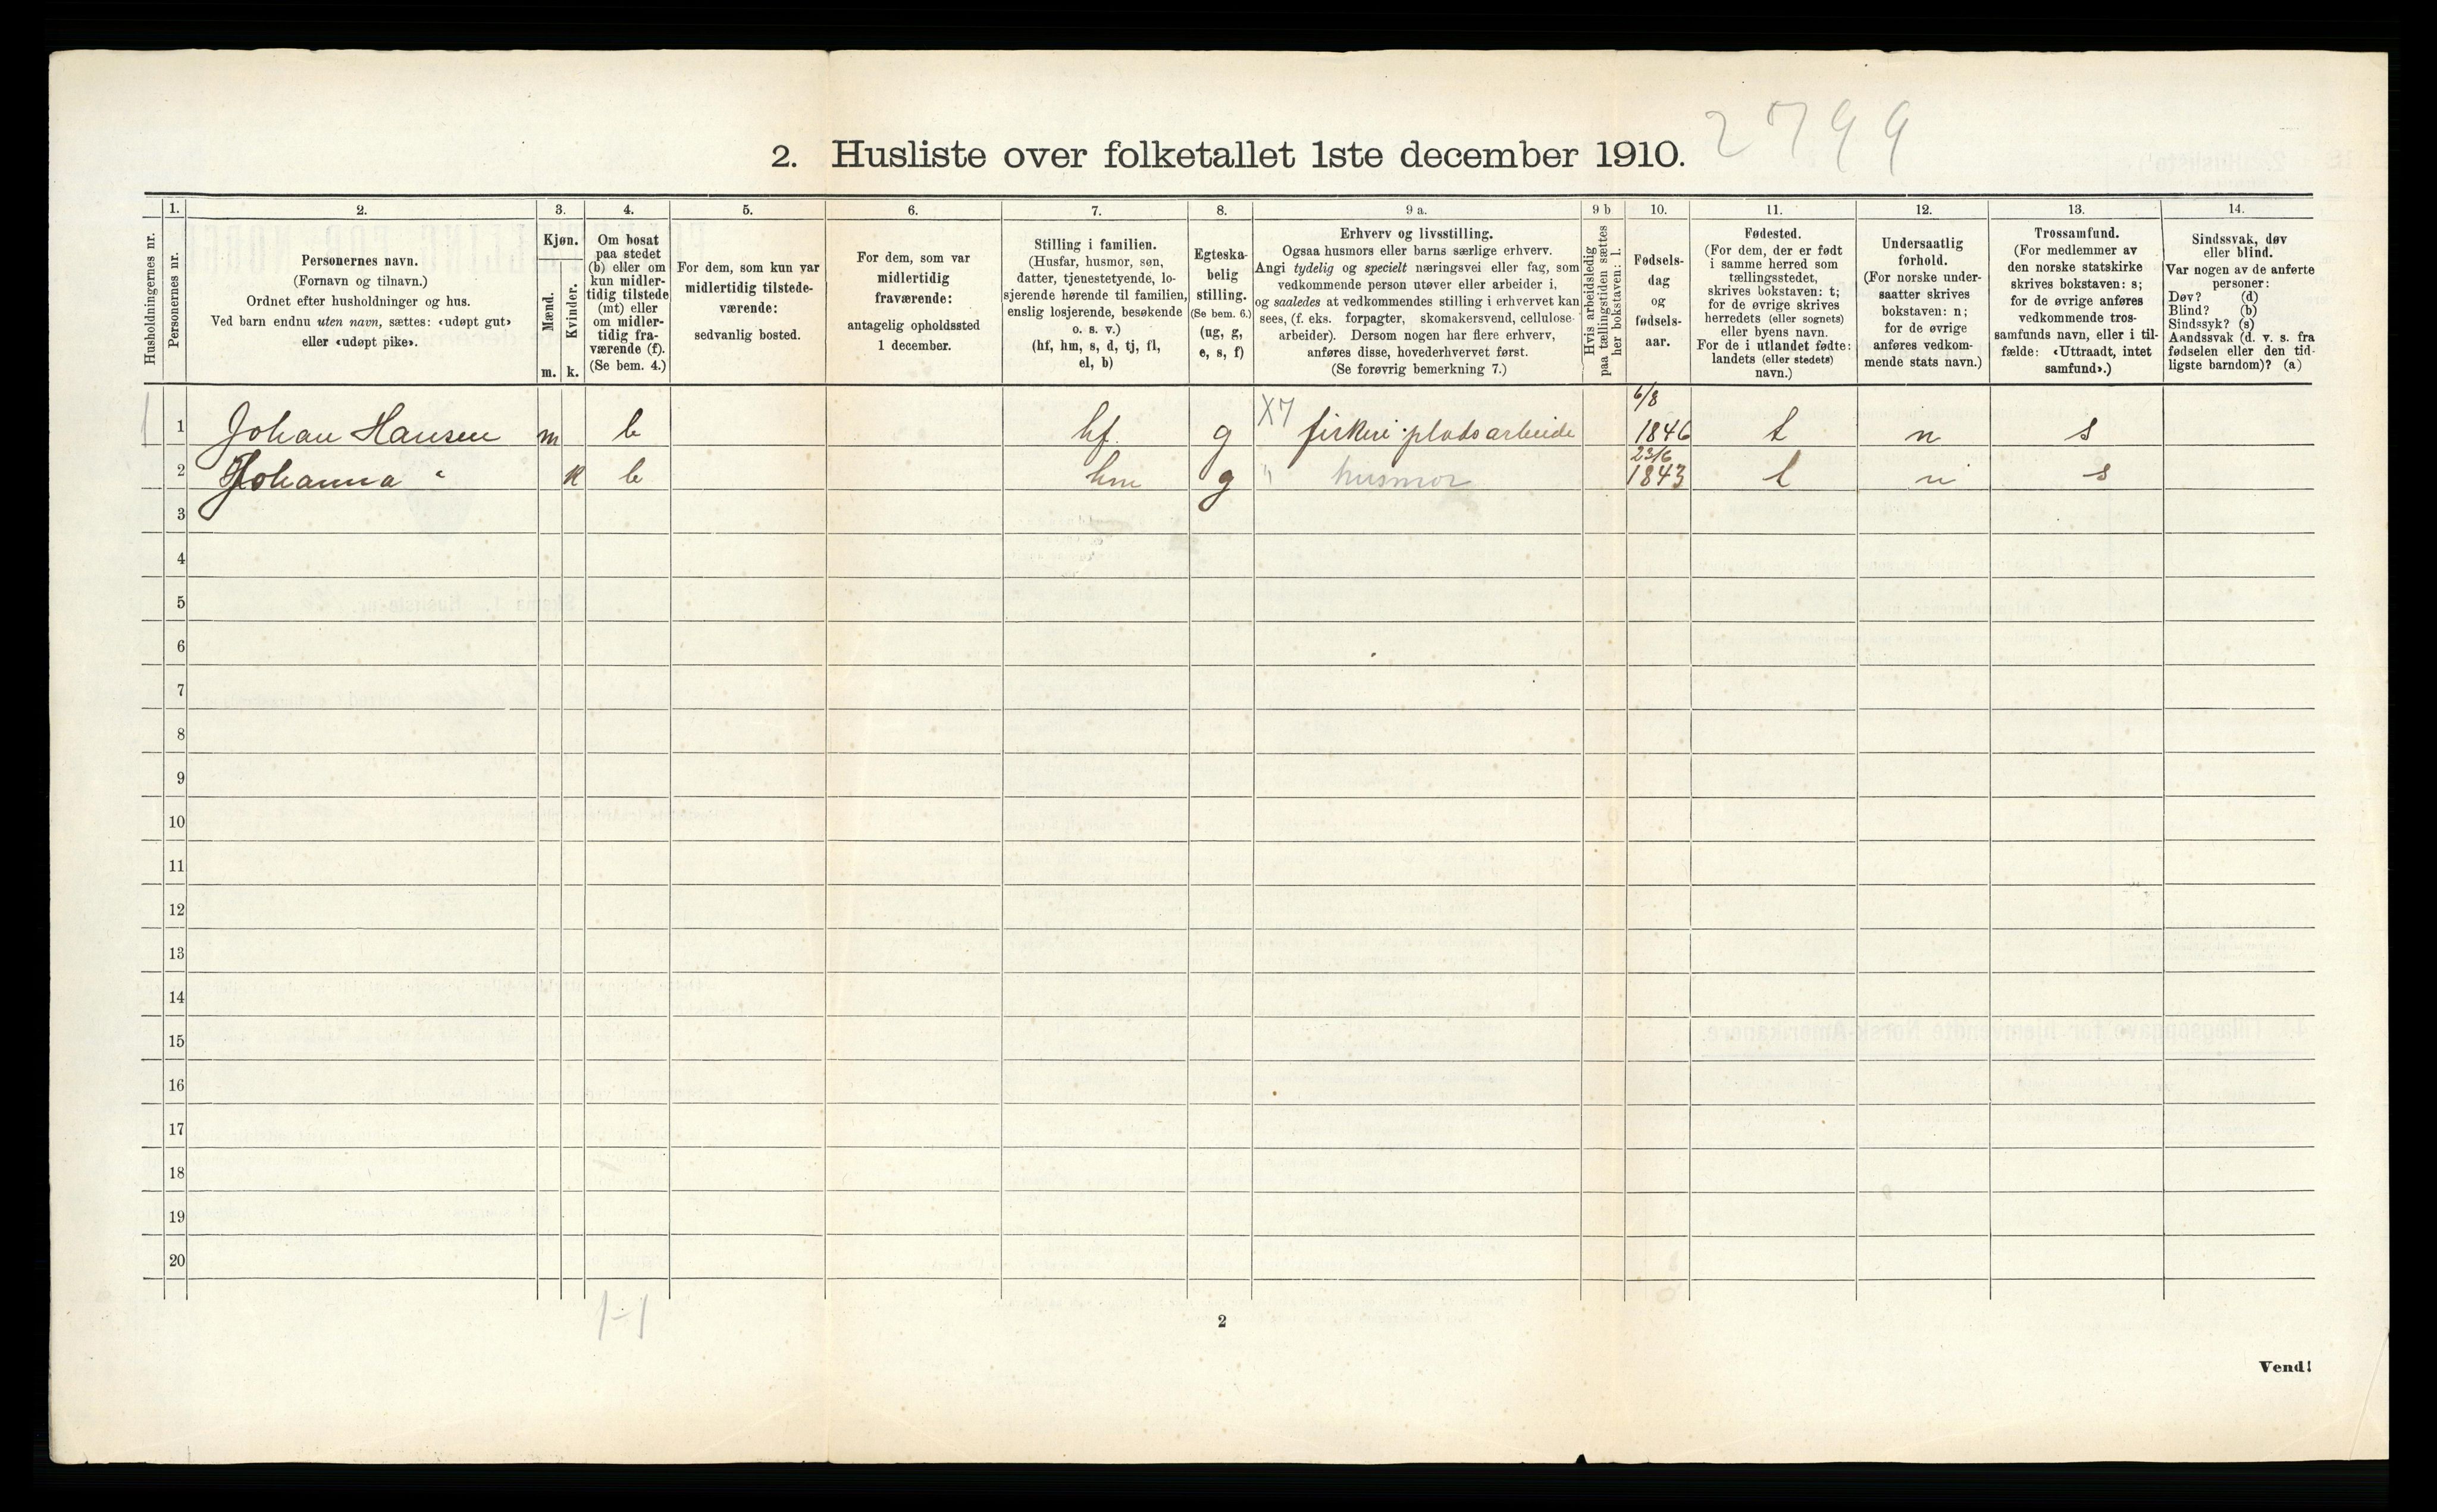 2. Husliste over folketallet 1ste december 1910.
2799
Husholdningernes nr.
1.
Personernes nr.
2.
Personernes navn.
(Fornavn og tilnavn.)
Ordnet efter husholdninger og hus.
Ved barn endnu uten navn, sættes: «udøpt gut»
eller «udøpt pike».
3.
Kjøn.
Mænd.
Kvinder.
m.
k.
4.
Om bosat
paa stedet
(b) eller om
kun midler-
tidig tilstede
(mt) eller
om midler-
tidig fra-
værende (f).
(Se bem. 4.)
5.
For dem, som kun var
midlertidig tilstede-
værende:
sedvanlig bosted.
6.
For dem, som var
midlertidig
fraværende:
antagelig opholdssted
1 december.
7.
Stilling i familien.
(Husfar, husmor, søn,
datter, tjenestetyende, lo-
sjerende hørende til familien,
enslig losjerende, besøkende
o. s. v.)
(hf, hm, s, d, tj, fl,
el, b)
8.
Egteska-
belig
stilling.
(Se bem. 6.)
(ug, g,
e, s, f)
9 a.
Erhverv og livsstilling.
Ogsaa husmors eller barns særlige erhverv.
Angi tydelig og specielt næringsvei eller fag, som
vedkommende person utøver eller arbeider i,
og saaledes at vedkommendes stilling i erhvervet kan
sees, (f. eks. forpagter, skomakersvend, cellulose-
arbeider). Dersom nogen har flere erhverv,
anføres disse, hovederhvervet først.
(Se forøvrig bemerkning 7.)
9 b
Hvis arbeidsledig
paa tællingstiden sættes
her bokstaven: l.
10.
Fødsels-
dag
og
fødsels-
aar.
11.
Fødested.
(For dem, der er født
i samme herred som
tællingsstedet,
skrives bokstaven: t;
for de øvrige skrives
herredets (eller sognets)
eller byens navn.
For de i utlandet fødte:
landets (eller stedets)
navn.)
12.
Undersaatlig
forhold.
(For norske under-
saatter skrives
bokstaven: n;
for de øvrige
anføres vedkom-
mende stats navn.)
13.
Trossamfund.
(For medlemmer av
den norske statskirke
skrives bokstaven: s;
for de øvrige anføres
vedkommende tros-
samfunds navn, eller i til-
fælde: «Uttraadt, intet
samfund».)
14.
Sindssvak, døv
eller blind.
Var nogen av de anførte
personer:
Døv? (d)
Blind? (b)
Sindssyk? (s)
Aandssvak (d. v. s. fra
fødselen eller den tid-
ligste barndom)? (a)
1 1 Johan Hansen m b hf. g X7 fiskeri pladsarbeide 6/8 1846 t n s
2 Johanna " k b hm g " husmor 23/6 1843 t n s
3
4
5
6
7
8
9
10
11
12
13
14
15
16
17
18
19
20
1-1
2
Vend!